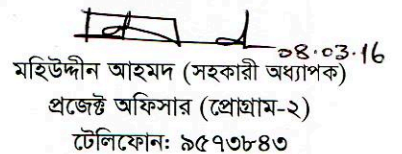 ০৪.০৩.16
মহিউদ্দীন আহমদ (সহকারী অধ্যাপক)
প্রজেক্ট অফিসার (প্রোগ্রাম-২)
টেলিফোন: ৯৫৭৩৮৪৩